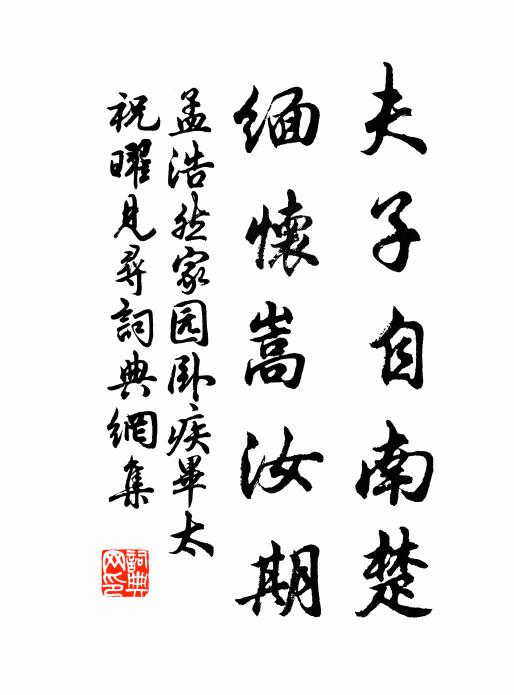 夫子自南楚
緬懷嵩汝期
孟浩然家园卧疾畢太
祝曜見尋詞典網集
詞典
网印